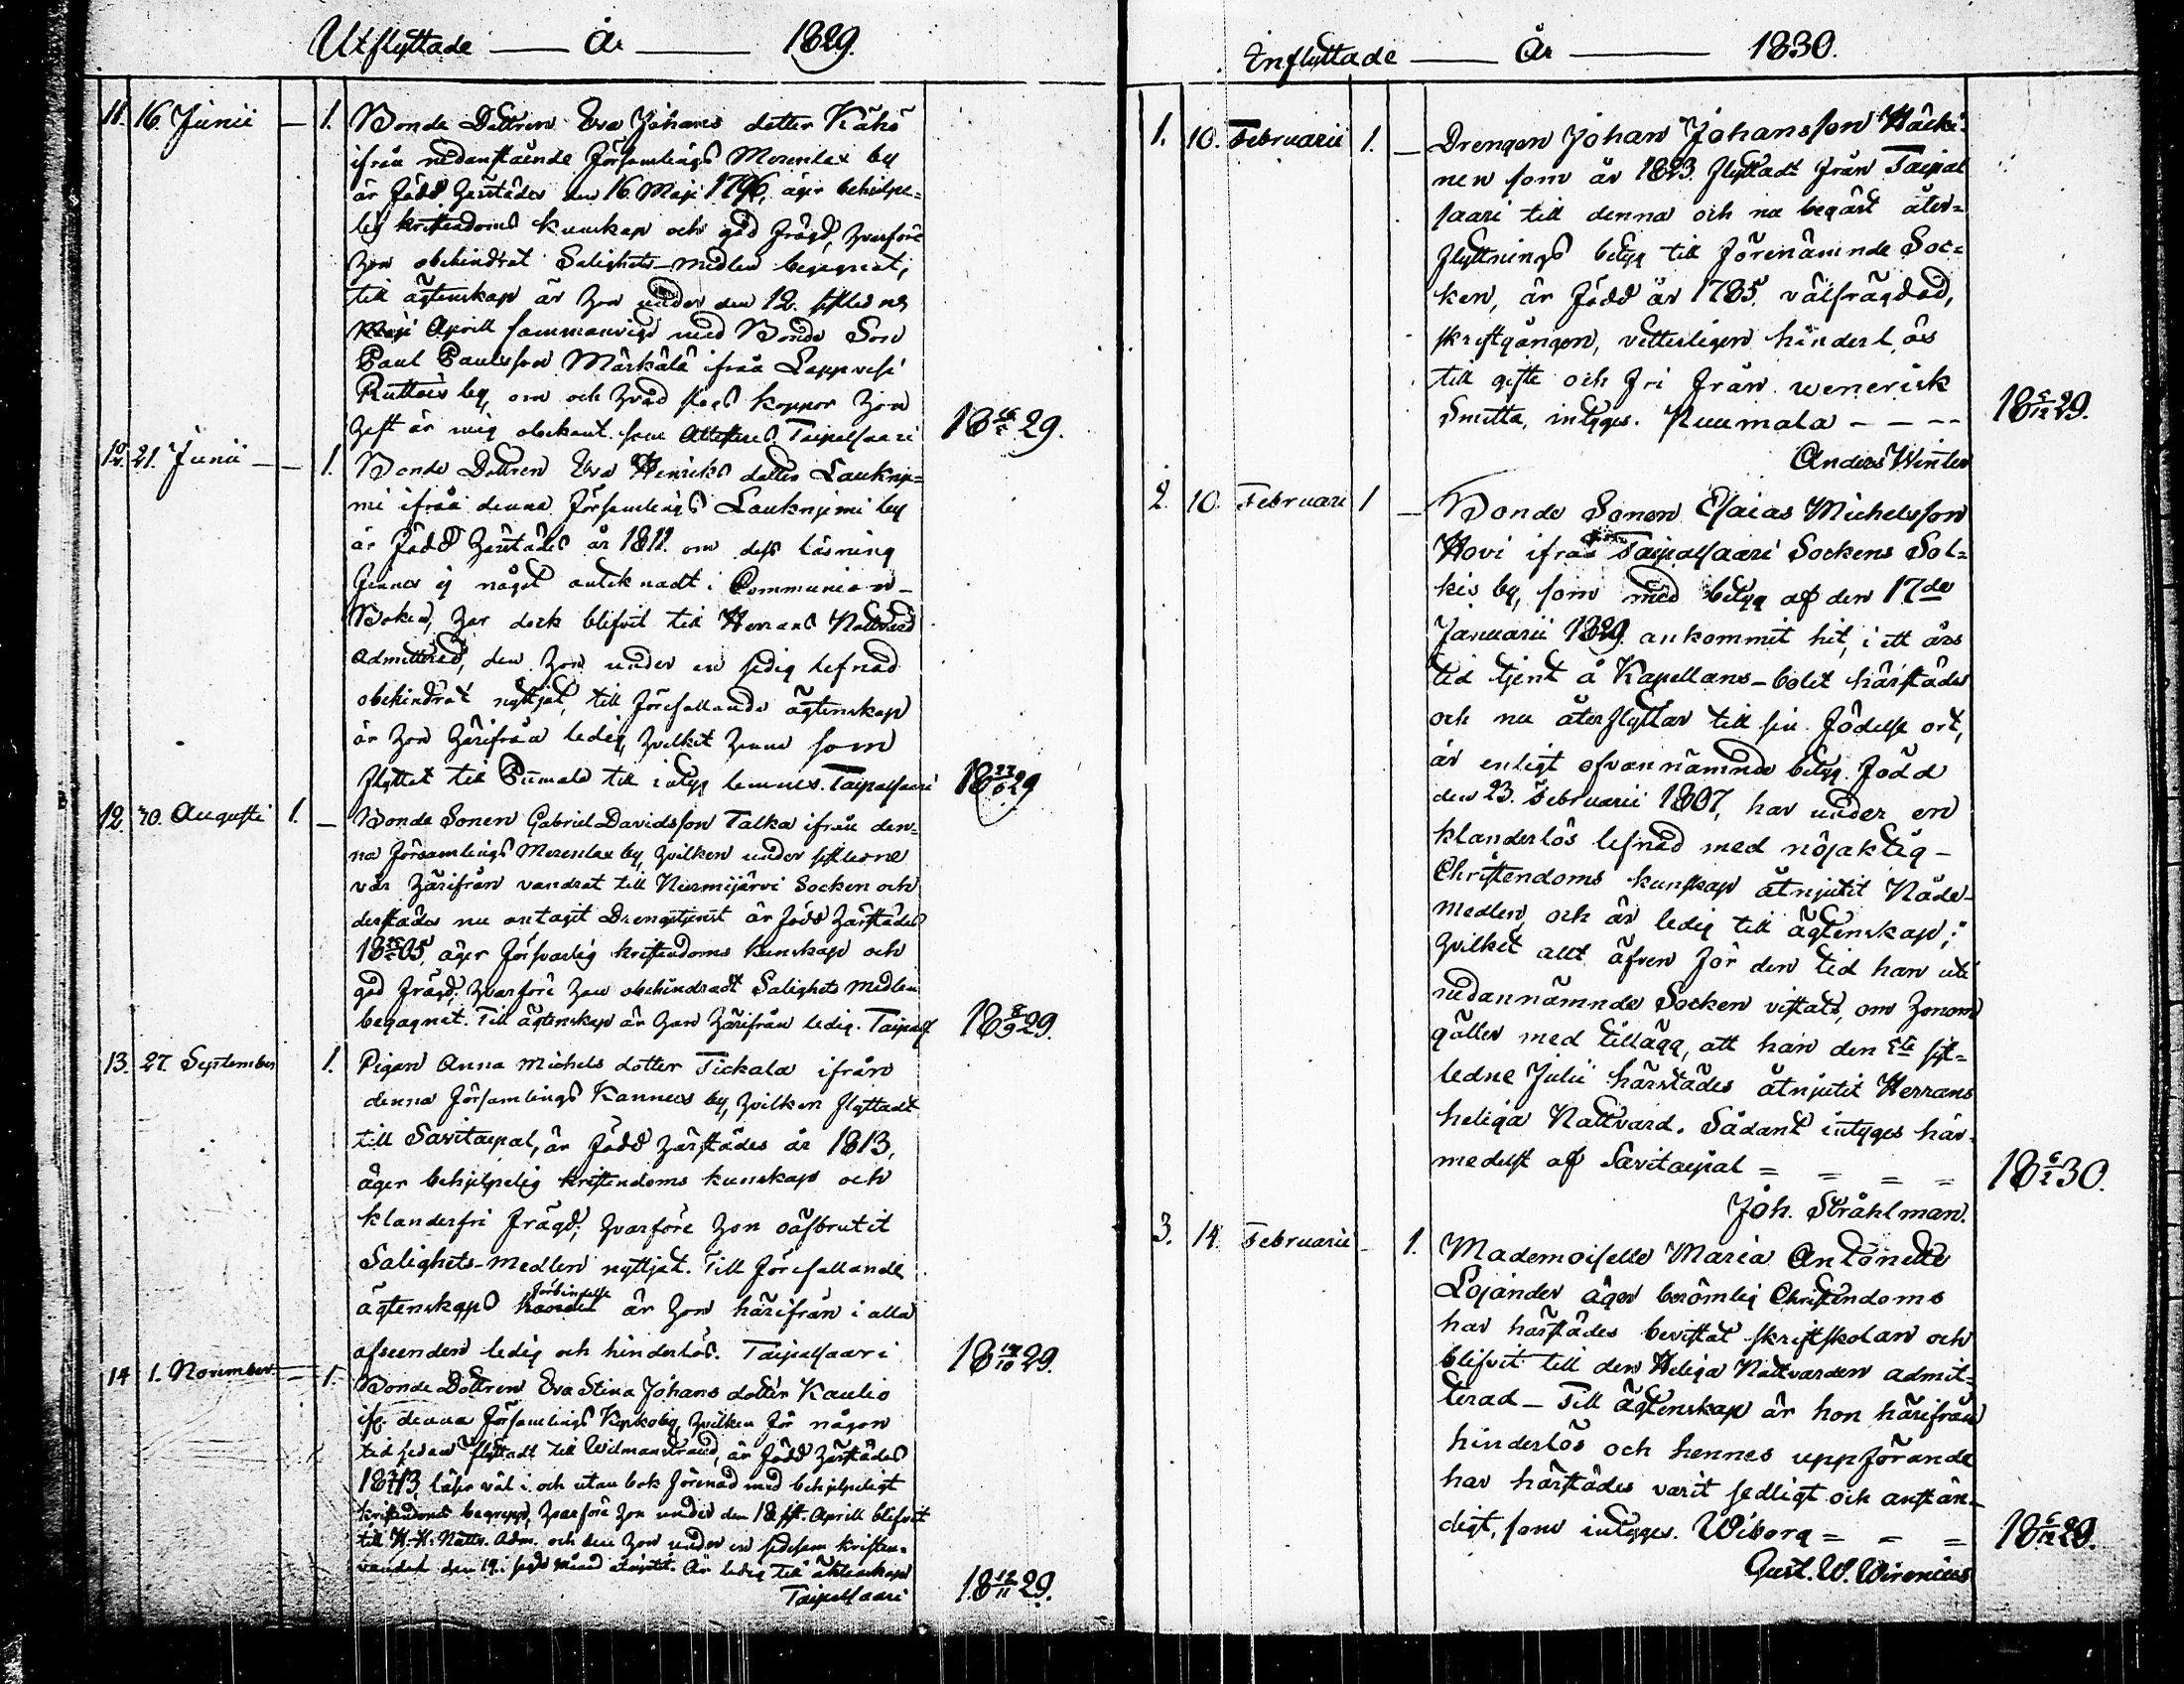 Utflyttade — År — 1829.
11. 16. Junii — 1. Bonde Dottren Eva Johans dotter Kähö
ifrån nedanstående Församlings Merenlax by
är född härstädes den 16 Maji 1796, äger behielpe-
lig kristendoms kunskap och god frägd, hvarföre
hon obehindrat Salighets-medlen begagnat,
till ägtenskap är hon under den 12. sistledne
Aprill sammanvigd med Bonde Son
Paul Paulsson Märkälä ifrån Lappvesi
Ruttois by, om och hvad slags koppor hon
haft är mig obekant. som Attesteras Taipalsaari 18 16/6 29.
12. 21. Junii — 1. Bonde Dottren Eva Henriks dotter Lauknie-
mi ifrån denna Församlings Laukniemi by
är född härstädes år 1811. om dess läsning
finnes ej något antecknadt i Communion-
Boken, har dock blifvit till Herrans Nattvard
admitterad, den hon under en sedig lefnad
obehindrat nyttjat, till förefallande ägtenskap
är hon härifrån ledig, hvilket henne som
flyttat till Pumala till intyg lemnas. Taipalsaari 18 /6 29
12. 30. Augusti 1. — Bonde Sonen Gabriel Davidsson Talka ifrån den-
na Församlings Merenlax by, hvilken under sistledne
vår härifrån vandrat till Nurmijärvi Socken och
derstädes nu antagit Drengtjenst är född härstädes
18 05, äger försvarlig kristendoms kunskap och
god frägd; hvarföre han obehindradt Salighets Medlen
begagnat. Till ägtenskap är han härifrån ledig. Taipals 18 8/9 29.
13. 27. September 1. Pigan Anna Michels dotter Tickala ifrån
denna Församlings Kannus by, hvilken flyttadt
till Savitaipal, är född härstädes år 1813,
äger behjelpelig kristendoms kunskap och
klanderfri frägd; hvarföre hon oafbrutit
Salighets-medlen nyttjat. Till förefallande
förbindelse
ägtenskaps är hon härifrån i alla
afseenden ledig och hinderlös. Taipalsaari 18 /10 29.
14 1. November — 1. Bonde Dottren Eva Stina Johans dotter Kaulio
ifr. denna Församlings by, hvilken för någon
tid sedan flyttadt till Wilmanstrand, är född härstädes
18 13, läser väl i och utan bok förenad med behjelpeligt
kristendoms begrepp, hvarföre hon under den 18 sist. Aprill blifvit
till H. H. Nattv. Adm. och den hon under en sedesam kristen-
vandel den 19. i månad åtnjutit. Är ledig till äktenskap
Taipalsaari 18 12/11 29.
Inflyttade — År — 1830.
1. 10. Februarii 1. — Drengen Johan Johansson Häcki-
nen som år 1823. flyttadt från Taipal
saari till denna och nu begärt åter-
flyttnings betyg till förenämnde Soc-
ken, är född år 1785. välfrägdad,
skriftgången, vetterligen hinderlös
till gifte och fri från wenerisk
Smitta, intyges. Puumala — — — 18 5/12 29.
Anders Winter
2. 10. Februari 1 — Bonde Sonen Esaias Michelsson
Hovi ifrån Taipalsaari Sockens Sol-
kis by, som med betyg af den 17de
Januarii 1829. ankommit hit, i ett års
tid tjent å Kapellans-bolet härstädes
och nu återflyttar till sin födelse ort,
är enligt ofvannämnde betyg född
den 23. Februarii 1807, har under en
klanderlös lefnad med nöjaktig-
Christendoms kunskap åtnjutit Nåde-
medlen, och är ledig till ägtenskap;
hvilket allt äfven för den tid han uti
nedannämnde Socken vistats, om honom
gäller med tillägg, att han den 5te sist-
ledne Julii härstädes åtnjutit Herrans
heliga Nattvard. Sådant intyges här-
medelst af Savitaipal = = = = 18 6/2 30.
Joh. Stråhlman.
3. 14. Februarii — 1. Mademoiselle Maria Antonette
Lojander äger berömlig Christendoms
har härstädes bevistat skriftskolan och
blifvit till den Heliga Nattvarden admit-
terad — Till ägtenskap är hon härifrån
hinderlös och hennes uppförande
har härstädes varit sedligt och anstän-
digt, som intyges. Wiborg = = = 18 /12 29.
Gust. W. Wirenius